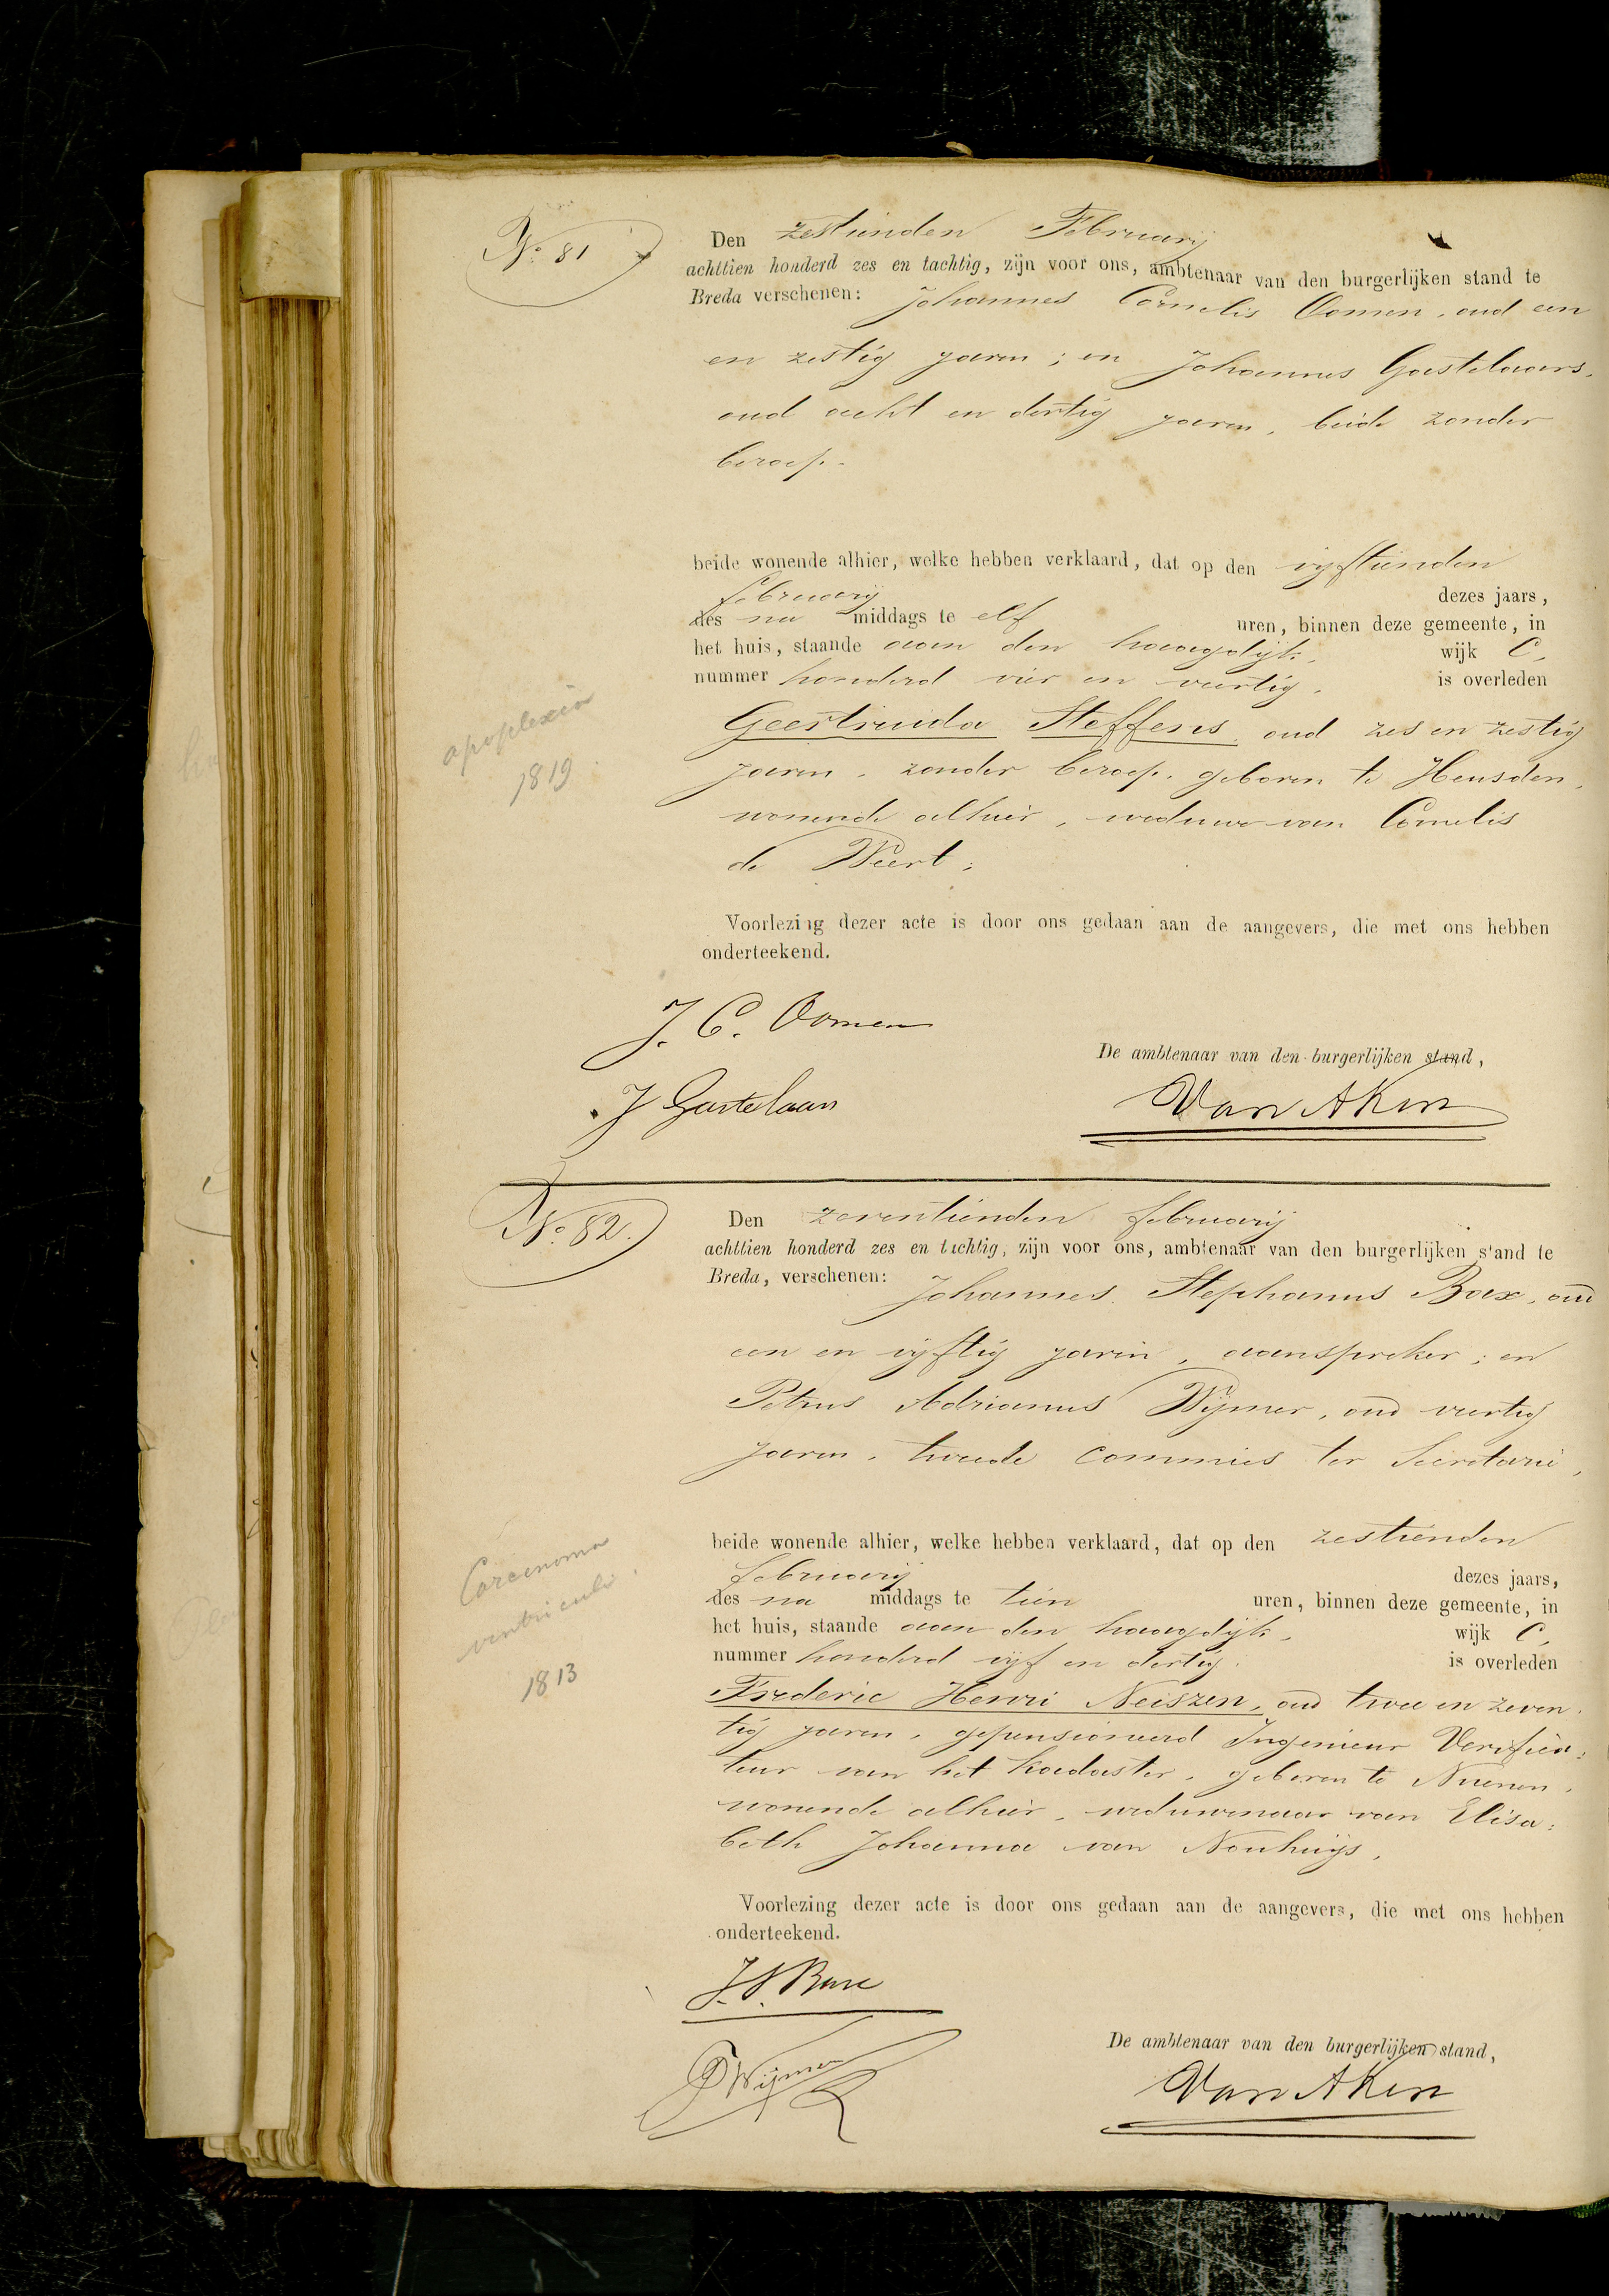 No. 81
Den zestienden Februarij
achttien honderd zes en tachtig, zijn voor ons, ambtenaar van den burgerlijken stand te
Breda verschenen: Johannes Cornelis Oomen, oud een
en zestig jaren; en Johannes Gastelaars,
oud acht en dertig jaren, beide zonder
beroep.
beide wonende alhier, welke hebben verklaard, dat op den vijftienden
februarij dezes jaars,
des na middags te elf uren, binnen deze gemeente, in
het huis, staande aan den haagdijk, wijk C,
nummer honderd vier en veertig, is overleden
apoplexia
1819
Geertruida Steffens, oud zes en zestig
jaren, zonder beroep, geboren te Heusden,
wonende alhier, weduwe van Cornelis
de Weert;
Voorlezing dezer acte is door ons gedaan aan de aangevers, die met ons hebben
onderteekend.
J. C. Oomen
De ambtenaar van den burgerlijken stand,
J Gastelaars
Van Aken
No. 82.
Den zeventienden februarij
achttien honderd zes en tachtig, zijn voor ons, ambtenaar van den burgerlijken stand te
Breda, verschenen: Johannes Stephanus Bax, oud
een en vijftig jaren, aanspreker; en
Petrus Adrianus Wijmer, oud veertig
jaren, tweede commies ter Secretarie,
beide wonende alhier, welke hebben verklaard, dat op den zestienden
februarij dezes jaars,
des na middags te tien uren, binnen deze gemeente, in
het huis, staande aan den haagdijk, wijk C,
nummer honderd vijf en dertig, is overleden
Carcinoma
ventriculi.
1813
Frederic Henri Neiszen, oud twee en zeven-
tig jaren, gepensioneerd Ingenieur Verifica:
teur van het Kadaster, geboren te Nuenen,
wonende alhier, weduwenaar van Elisa:
beth Johanna van Nouhuijs,
Voorlezing dezer acte is door ons gedaan aan de aangevers, die met ons hebben
onderteekend.
J. S. Bax
De ambtenaar van den burgerlijken stand,
Wijmer
Van Aken